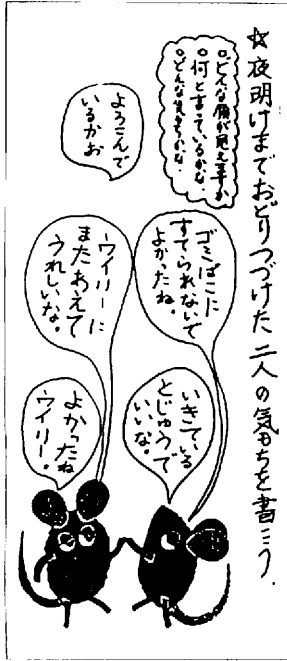 ☆夜明けまでおどりつづけた二人の気もちを書こう。
○どんな顔が見えますか
○何と言っているかな。
○どんな気もちかな。
よろこんで
いるかお
ゴミばこに
すてられないで
よかったね。
ウイリーに
またあえて
うれしいな。
いきている
とじゅうで
いいな。
よかったね
ウイリー。